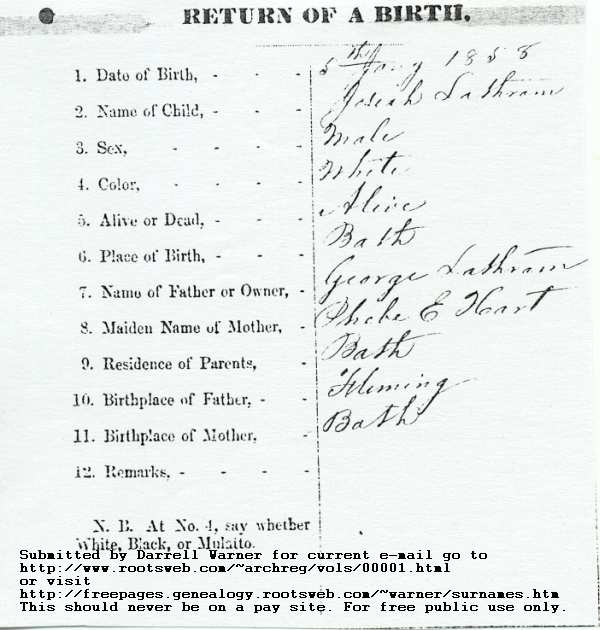 RETURN OF A BIRTH.
1. Date of Birth, - - - 5th Jany 1858
2. Name of Child, - - - Josiah Lathram
3. Sex, - - - - Male
4. Color, - - - - White
5. Alive or Dead, - - - Alive
6. Place of Birth, - - - Bath
7. Name of Father or Owner, - George Lathram
8. Maiden Name of Mother, - Phebe E Hart
9. Residence of Parents, - Bath
10. Birthplace of Father, - - Fleming
11. Birthplace of Mother, - Bath
12. Remarks, - - - -
N. B. At No. 4, say whether
White, Black, or Mulatto.
Submitted by Darrell Warner for current e-mail go to
http://www.rootsweb.com/~archreg/vols/00001.html
or visit
http://freepages.genealogy.rootsweb.com/~warner/surnames.htm
This should never be on a pay site. For free public use only.